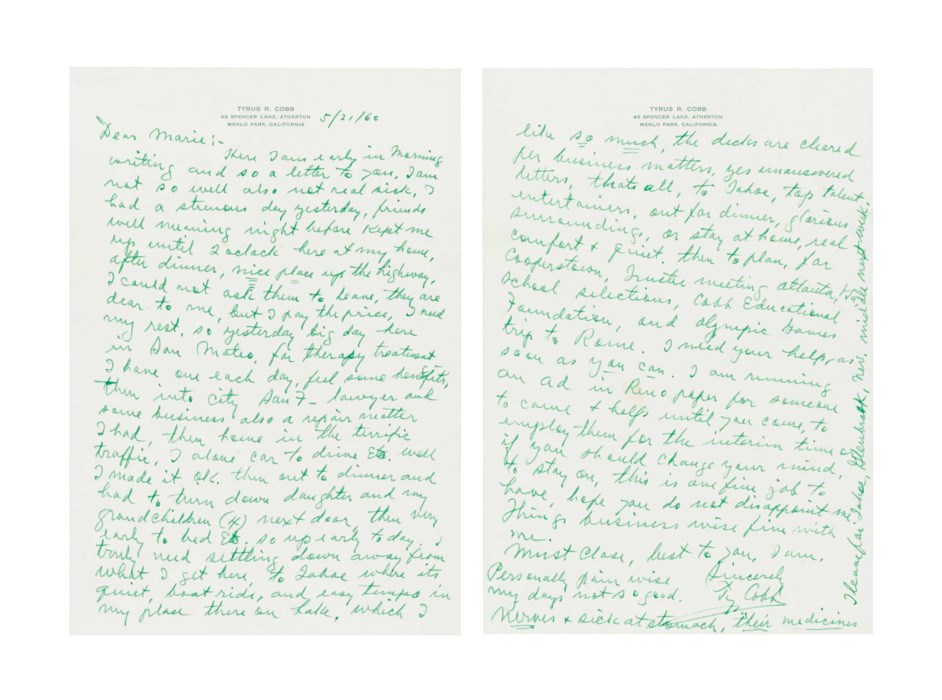 TYRUS R. COBB
48 SPENCER LANE, ATHERTON
MENLO PARK, CALIFORNIA
5/21/60
Dear Marie:-
Here I am early in morning
writing and so a letter to you, I am
not so well also not real sick, I
had a strenous day yesterday, friends
well meaning night before kept me
up until 2 oclock here at my home,
after dinner, nice place up the highway,
I could not ask them to leave, they are
dear to me, but I pay the price, I need
my rest, so yesterday big day here
in San Mateo, for therapy treatment
I have one each day, feel some benefits,
then into city San F- lawyer and
some business also a repair matter
I had, then home in the terrific
traffic, I alone car to drive Etc. well
I made it OK. then out to dinner and
had to turn down daughter and my
grandchildren (4) next door, then very
early to bed Etc. so up early today. I
truly need settling down away from
what I get here, to Tahoe where its
quiet, boat ride, and easy tempo in
my place there on lake, which I
TYRUS R. COBB
48 SPENCER LANE, ATHERTON
MENLO PARK, CALIFORNIA
like so much, the decks are cleared
per business matters, yes unanswered
letters, thats all, to Tahoe, top talent
entertainers, out for dinner, glorious
surrounding, or stay at home, real
comfort & quiet. then to plan, for
Cooperstown, Trustee meeting Atlanta,
School selections, Cobb Educational
Foundation, and Olympic Games
trip to Rome. I need your help, as
soon as you can. I am running
an ad in Reno paper for someone
to come & help until you come, to
employ them for the interim time or
if you should change your mind,
to stay on, this is one fine job to
have, hope you do not disappoint me.
Things business wise fine with
me.
Must close, best to you, I am.
Sincerely
Ty Cobb
Personally pain wise
my days not so good.
Nerves & sick at stomach, their medicines
I leave for Tahoe, Glenbrook, Nev. middle next week.